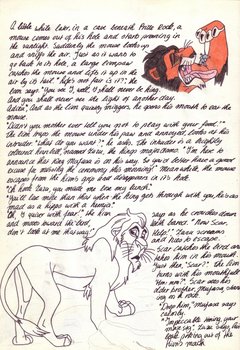 A little while later, in a cave beneath Pride Rock, a
mouse comes out of his hole and starts grooming in
the sunlight. Suddenly the mouse looks up
and sniffs the air. Just as it wants to go
back in its hole, a large lionpaw
catches the mouse and lifts it up in the
air by its tail. "Life's not fair, is it?" the
lion says. "You see I, well, I shall never be king.
And you shall never see the light of another day.
Adieu". Just as the lion grins, he opens his mouth to eat the
mouse.
"Didn't your mother ever tell you not to play with your food?"
The lion drops the mouse under his paw and annoyed, looks at his
intruder. "What do you want?", he asks. The intruder is a brightly
coloured hornbill, named Zazu, the kings majordomo. "I'm here to
announce that King Mufasa is on his way. So you'd better have a good
excuse for missing the ceremony this morning." Meanwhile the mouse
escapes from the lion's grip and disappears in it's hole.
"Oh look Zazu, you made me lose my lunch."
"You'll lose more than that when the king gets through with you, he's as
mad as a hippo with a hernia."
"Oh, I quiver with fear!", the lion
says as he crouches down
and moves toward the bird
"Now Scar,
don't look at me that way
Help!". Zazu screams
and tries to escape.
Scar catches the bird and
takes him in his mouth.
older brother, Mufasa
in on rock.
"Drop him", Mufasa says
calmly.
"Impeccable timing, your
majesty", Zazu says, his
head sticking out of the
lion's mouth.